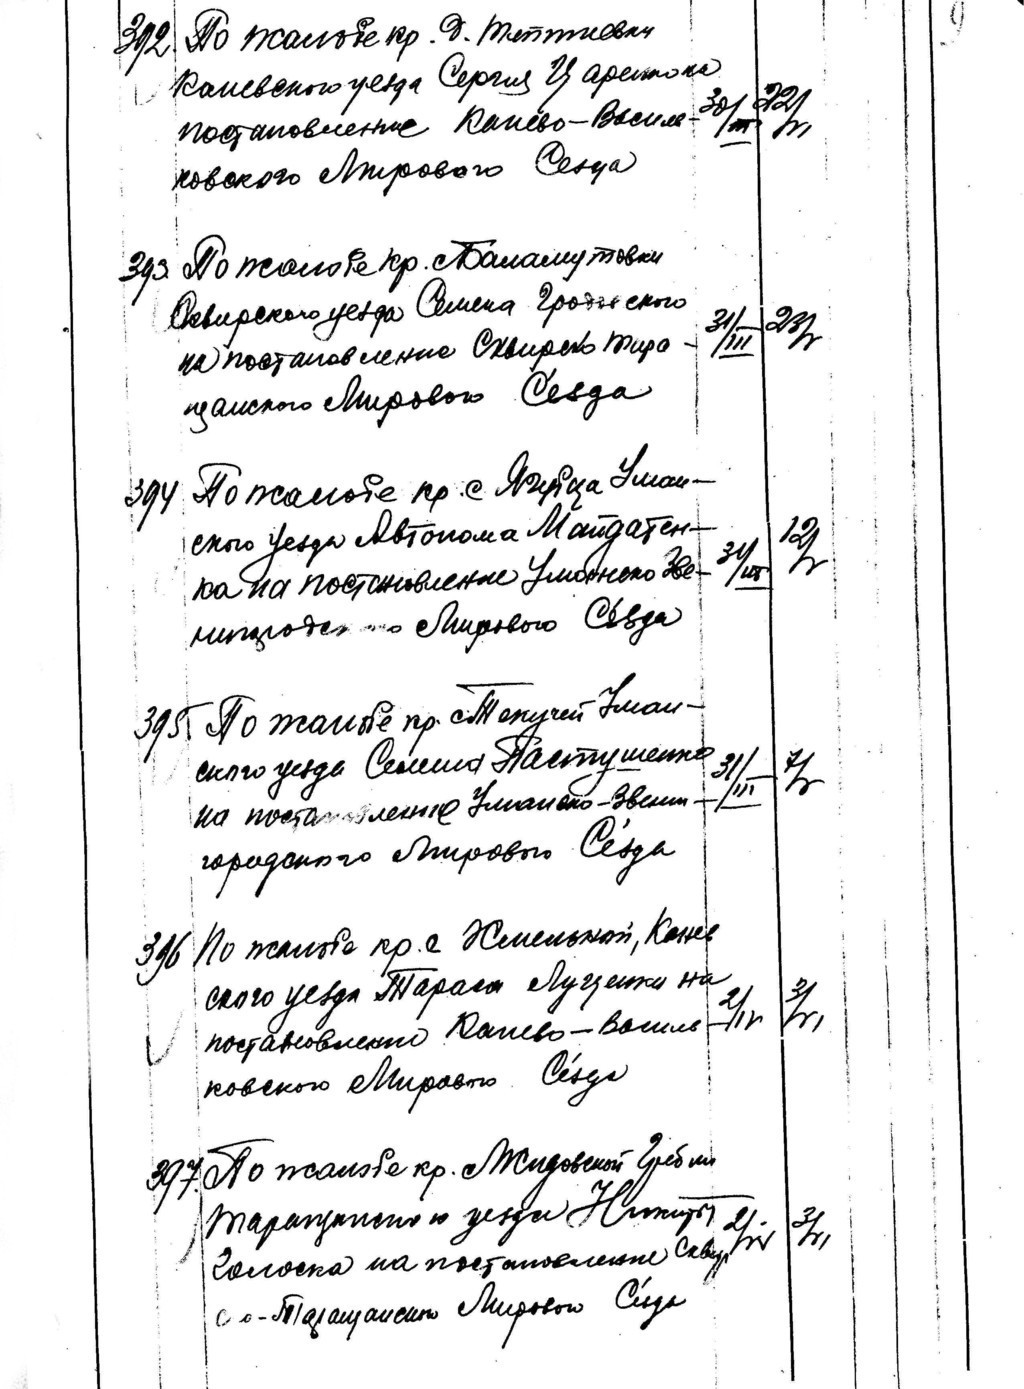 392 По жалобе кр. д. Тетиевки
Каневского уезда Сергия Царенко на
постановление Канево-Василь- 30/III 22/VI
ковского Мирового Сезда
393. По жалобе кр. с Баламутовки
Сквирского уезда Семена Гродзского
на постановление Сквирско Тара- 31/III 23/V
щанского Мирового Сезда
394 По жалобе кр. с Ягубца Уман-
ского уезда Автонома Майдатен-
ка на постановление Уманско Зве- 31/III 12/V
нигородского Мирового Сезда
395. По жалобе кр. с Текучей Уман-
ского уезда Семена Пастушенко
на постановление Уманско-Звени- 31/III 7/V
городского Мирового Сезда
396 По жалобе кр. с Хмельной, Канев
ского уезда Тараса Луценка на
постановление Канево-Василь- 2/IV 3/VI
ковского Мирового Сезда
397. По жалобе кр. с Жидовской Гребли
Таращанского уезда Никиты 2/IV 3/VI
Голоска на постановление Сквир
ско-Таращанского Мирового Сезда